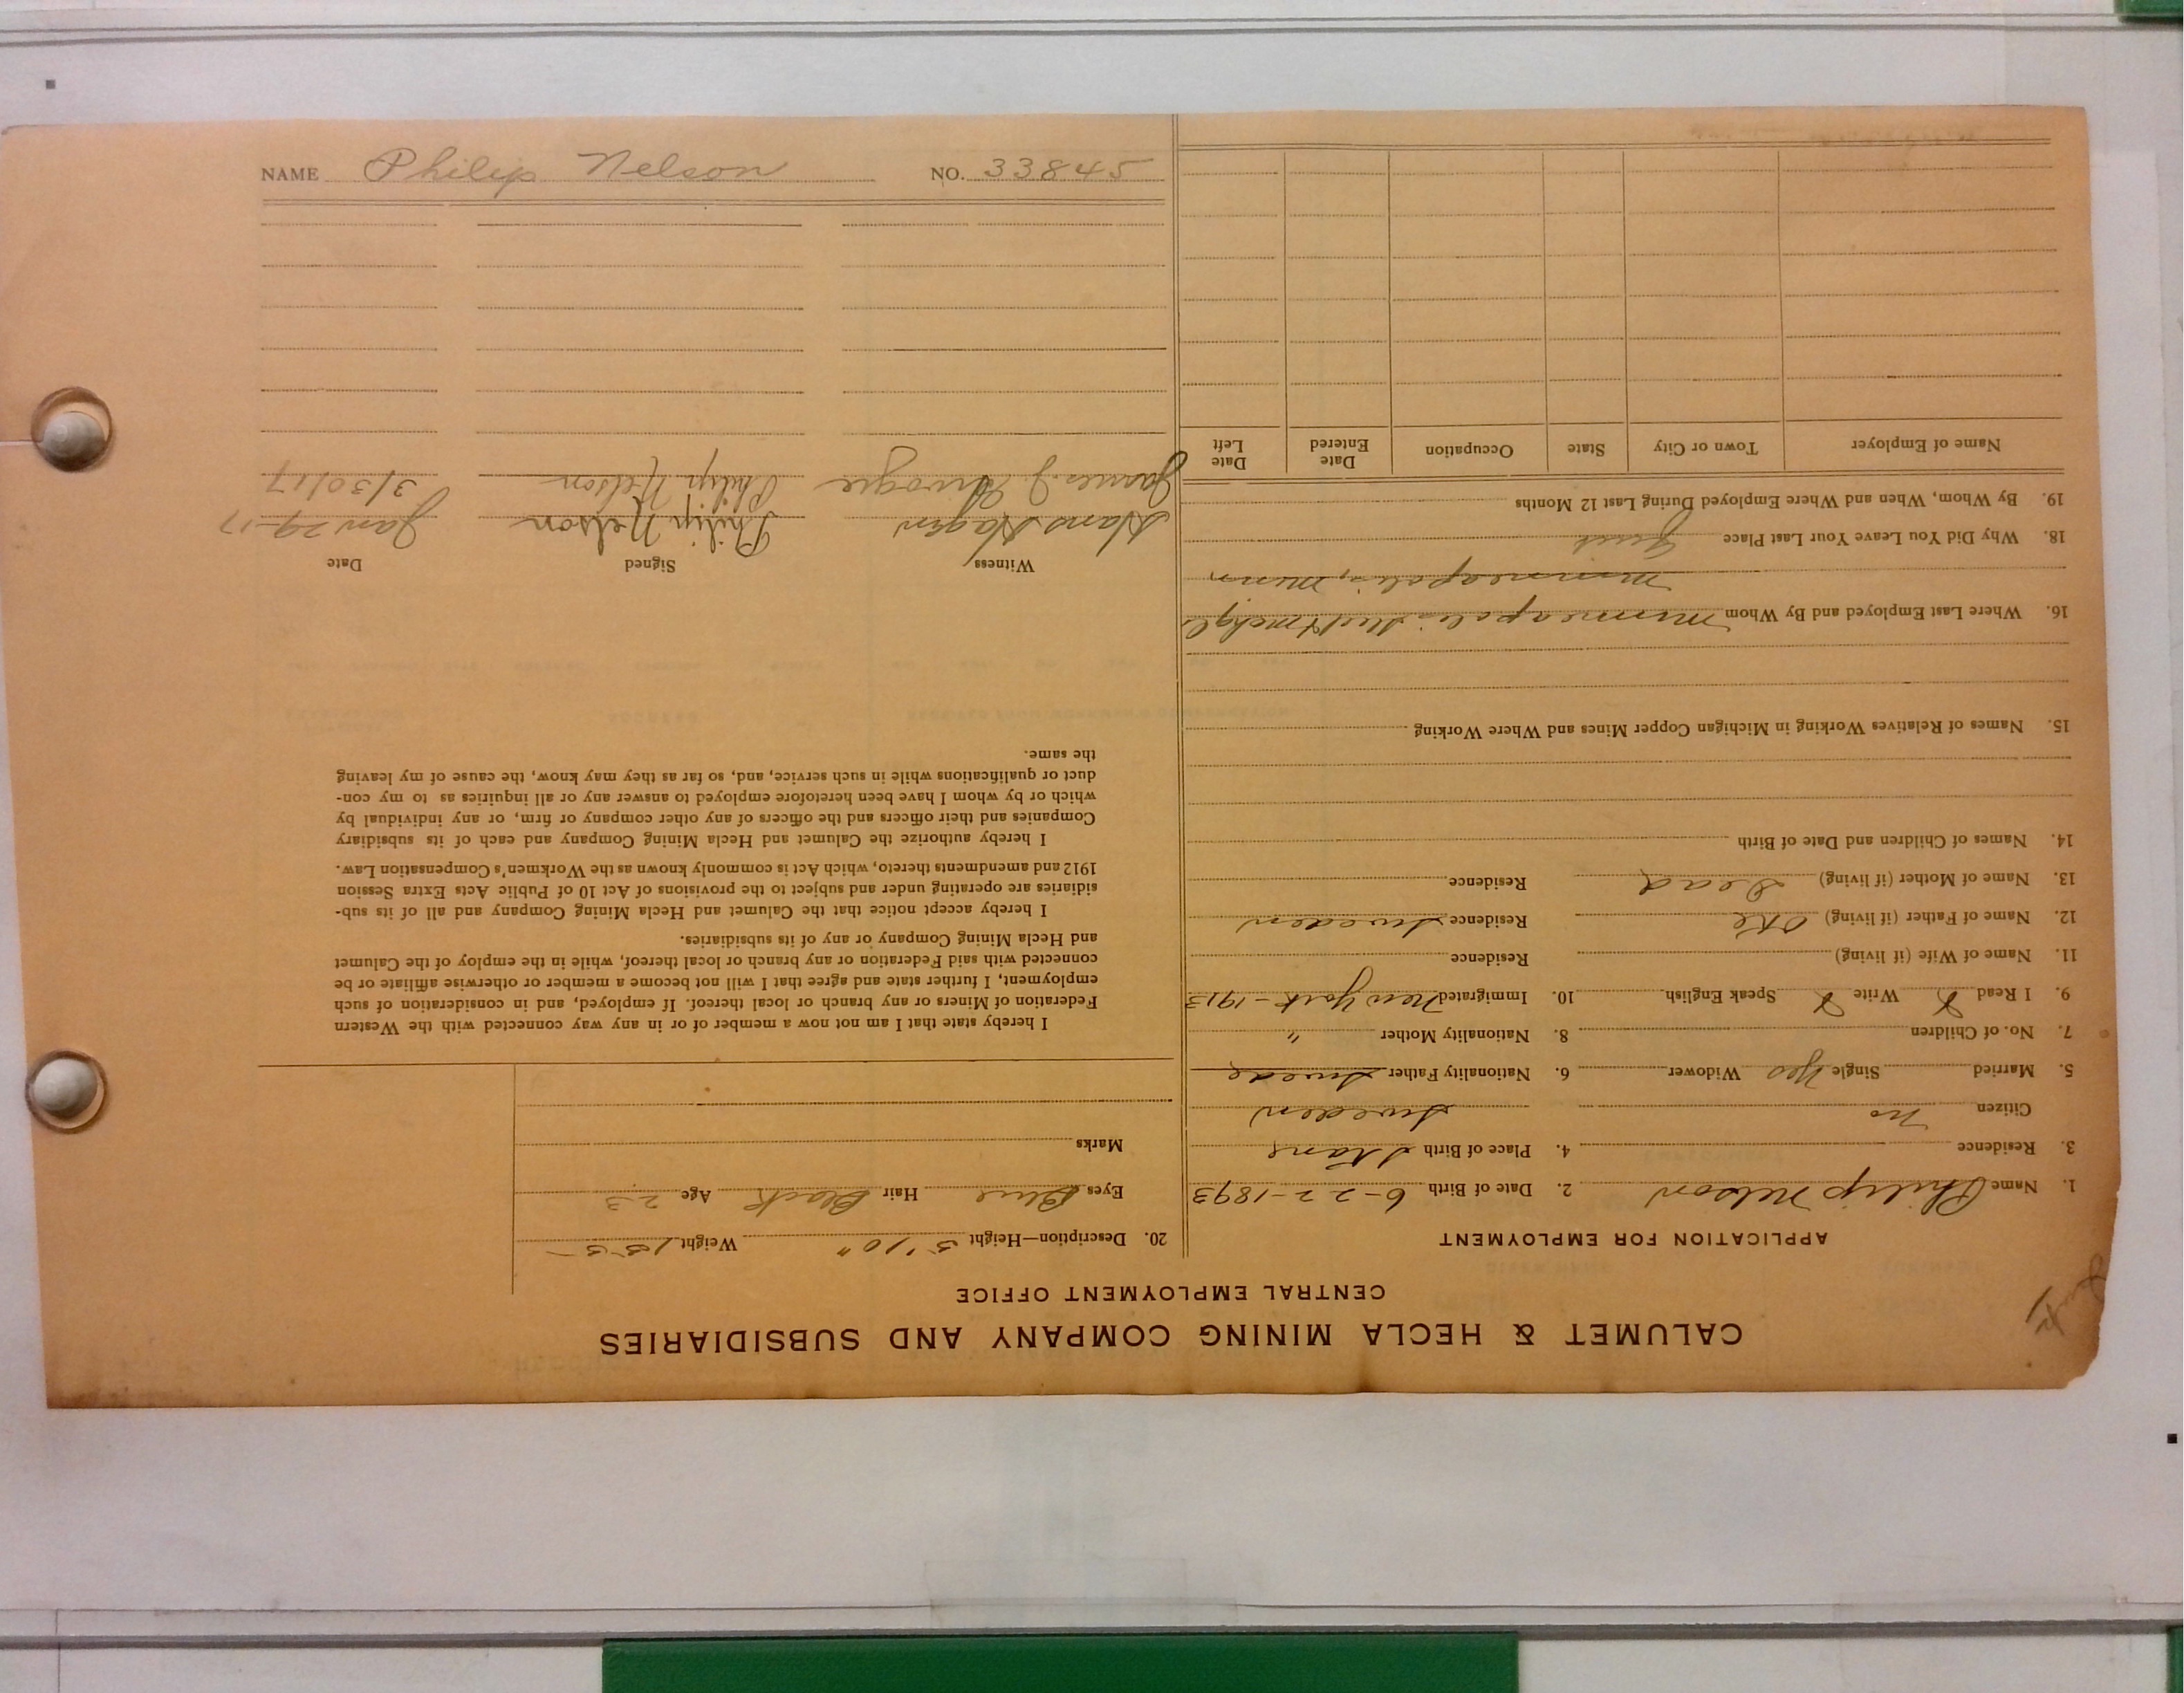 CALUMET & HECLA MINING COMPANY AND SUBSIDIARIES
CENTRAL EMPLOYMENT OFFICE
APPLICATION FOR EMPLOYMENT
1. Name Philip Nelson 2. Date of Birth 6-22-1893
3. Residence 4. Place of Birth Skane
Citizen no Sweden
5. Married Single Yes Widower 6. Nationality Father Swede
7. No. of Children 8. Nationality Mother "
9. I Read X Write X Speak English 10. Immigrated New York - 1913
11. Name of Wife (if living) Residence
12. Name of Father (if living) Ole Residence Sweden
13. Name of Mother (if living) Dead Residence
14. Names of Children and Date of Birth
15. Names of Relatives Working in Michigan Copper Mines and Where Working
16. Where Last Employed and By Whom Minneapolis
Minneapolis, Minn.
18. Why Did You Leave Your Last Place Quit
19. By Whom, When and Where Employed During Last 12 Months
Name of Employer Town or City State Occupation Date Entered Date Left
20. Description—Height 5'10" Weight 155
Eyes Blue Hair Black Age 23
Marks
I hereby state that I am not now a member of or in any way connected with the Western
Federation of Miners or any branch or local thereof. If employed, and in consideration of such
employment, I further state and agree that I will not become a member or otherwise affiliate or be
connected with said Federation or any branch or local thereof, while in the employ of the Calumet
and Hecla Mining Company or any of its subsidiaries.
I hereby accept notice that the Calumet and Hecla Mining Company and all of its sub-
sidiaries are operating under and subject to the provisions of Act 10 of Public Acts Extra Session
1912 and amendments thereto, which Act is commonly known as the Workmen's Compensation Law.
I hereby authorize the Calumet and Hecla Mining Company and each of its subsidiary
Companies and their officers and the officers of any other company or firm, or any individual by
which or by whom I have been heretofore employed to answer any or all inquiries as to my con-
duct or qualifications while in such service, and, so far as they may know, the cause of my leaving
the same.
Witness Signed Date
Hans Hagen Philip Nelson Jan 29-17
James J. Philip Nelson 3/30/17
NAME Philip Nelson NO. 33845